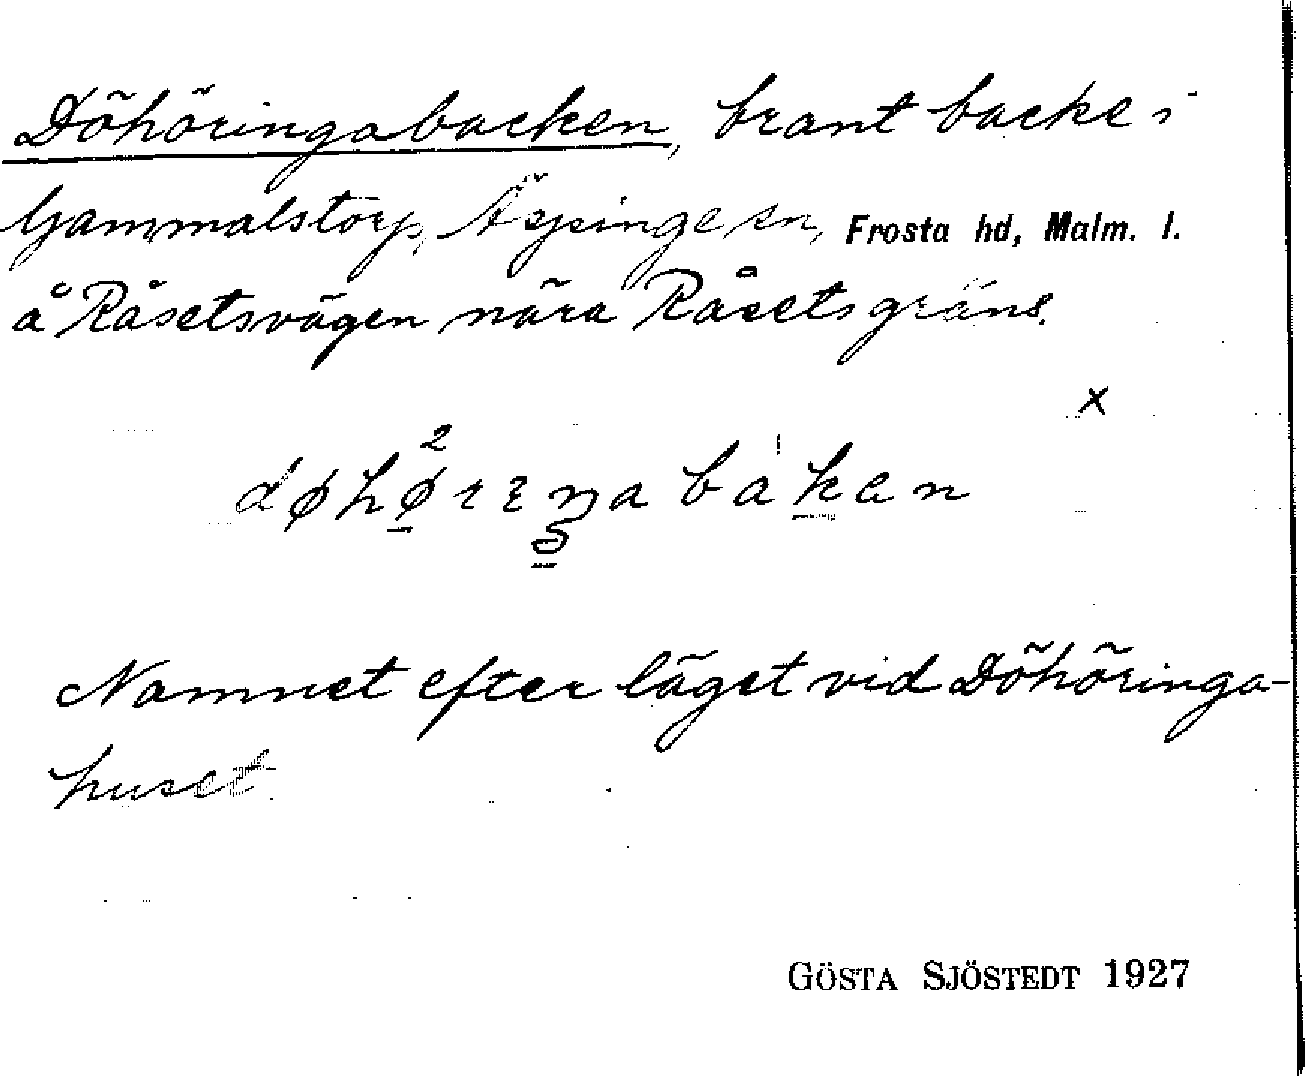 Döhöringabacken, brant backe i
Gammalstorp, Äspinge sn, Frosta hd, Malm. l.
å Råsetsvägen nära Råsets gräns.
x
Namnet efter läget vid Döhöringa-
huset.
GÖSTA SJÖSTEDT 1927